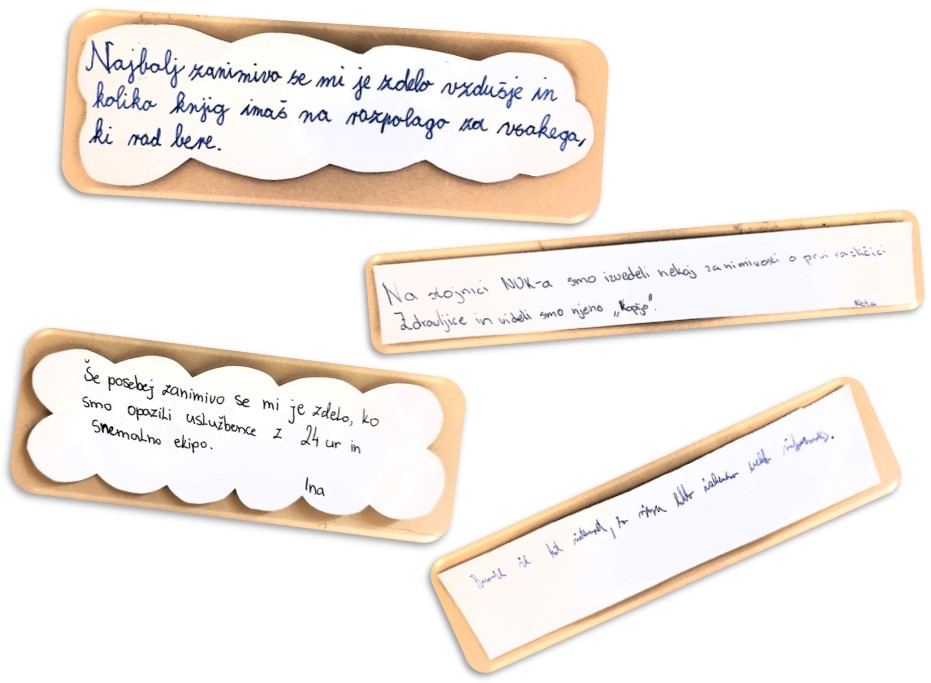 Najbolj zanimivo se mi je zdelo vzdušje in
koliko knjig imaš na razpolago za vsakega,
ki rad bere.
Na stojnici NUK-a smo izvedeli nekaj zanimivosti o prvi različici
Zdravljice in videli smo njeno „kopijo".
Neta
Še posebej zanimivo se mi je zdelo, ko
smo opazili uslužbence z 24 ur in
snemalno ekipo.
Ina
je kot internet, iz njega lahko